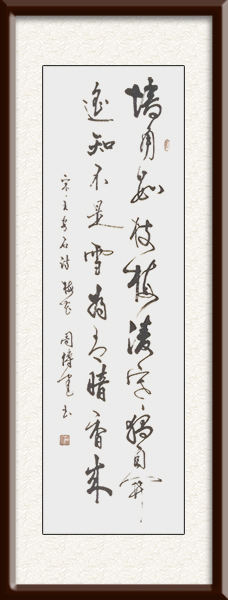 墙角数枝梅凌寒独自开
遥知不是雪为有暗香来
宋·王安石诗 梅花 周博建书